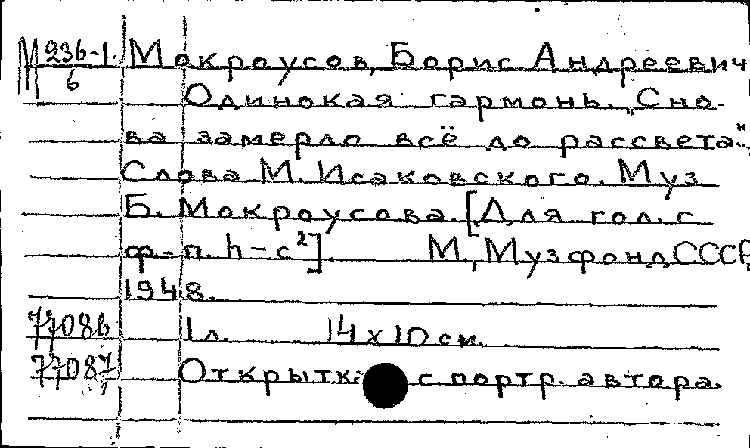 М 236-1 Мокроусов, Борис Андреевич
6
Одинокая гармонь. „Сно-
ва замерло всё до рассвета".
Слова М. Исаковского. Муз
Б. Мокроусова. [Для гол. с
ф-п. h-c²]. М., Музфонд СССР,
1948.
77086 1 л. 14x10 см.
77087 Открытка с портр. автора.